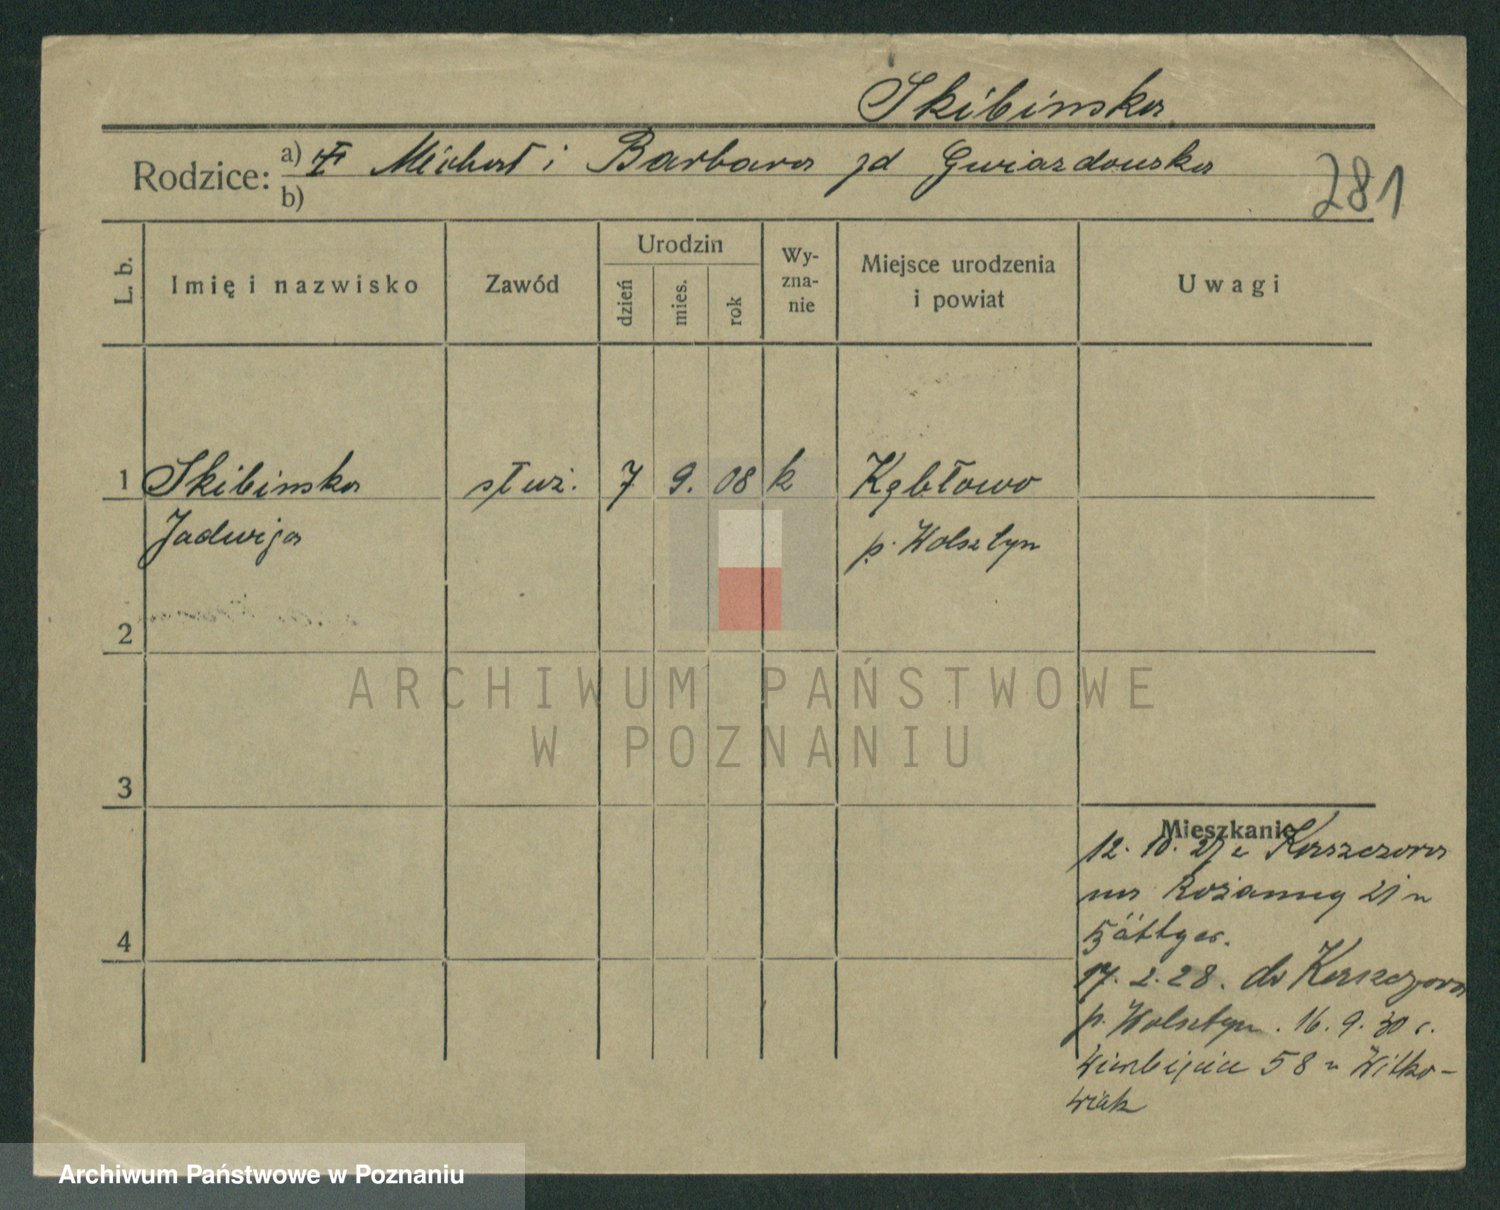 Skibinska
Rodzice: a) Michał i Barbara zd Gwiazdowska
b)
281
L. b.
Imię i nazwisko
Zawód
Urodzin
dzień
mies.
rok
Wy-
zna-
nie
Miejsce urodzenia
i powiat
Uwagi
1 Skibinska służ. 7 9. 08 k Kębłowo
Jadwiga p. Wolsztyn
2
3
4
Mieszkanie
12. 10. 27 z Kaszczora
na Różanną 21 u
17. 2. 28. do Kaszczora
p. Wolsztyn. 16. 9. 30 r.
Wierzbięcice 58 u Witko-
wiak
ARCHIWUM PAŃSTWOWE
W POZNANIU
Archiwum Państwowe w Poznaniu